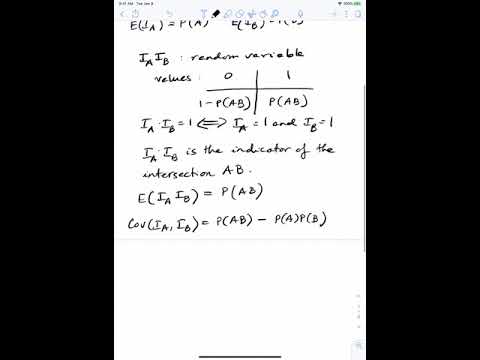 9:41 AM Tue Jan 9
E(I_A) = P(A) E(I_B) = P(B)
I_A I_B : random variable
values : 0 1
1-P(AB) P(AB)
I_A · I_B = 1 ⟺ I_A = 1 and I_B = 1
I_A · I_B is the indicator of the
intersection AB.
E(I_A I_B) = P(AB)
Cov(I_A, I_B) = P(AB) - P(A)P(B)